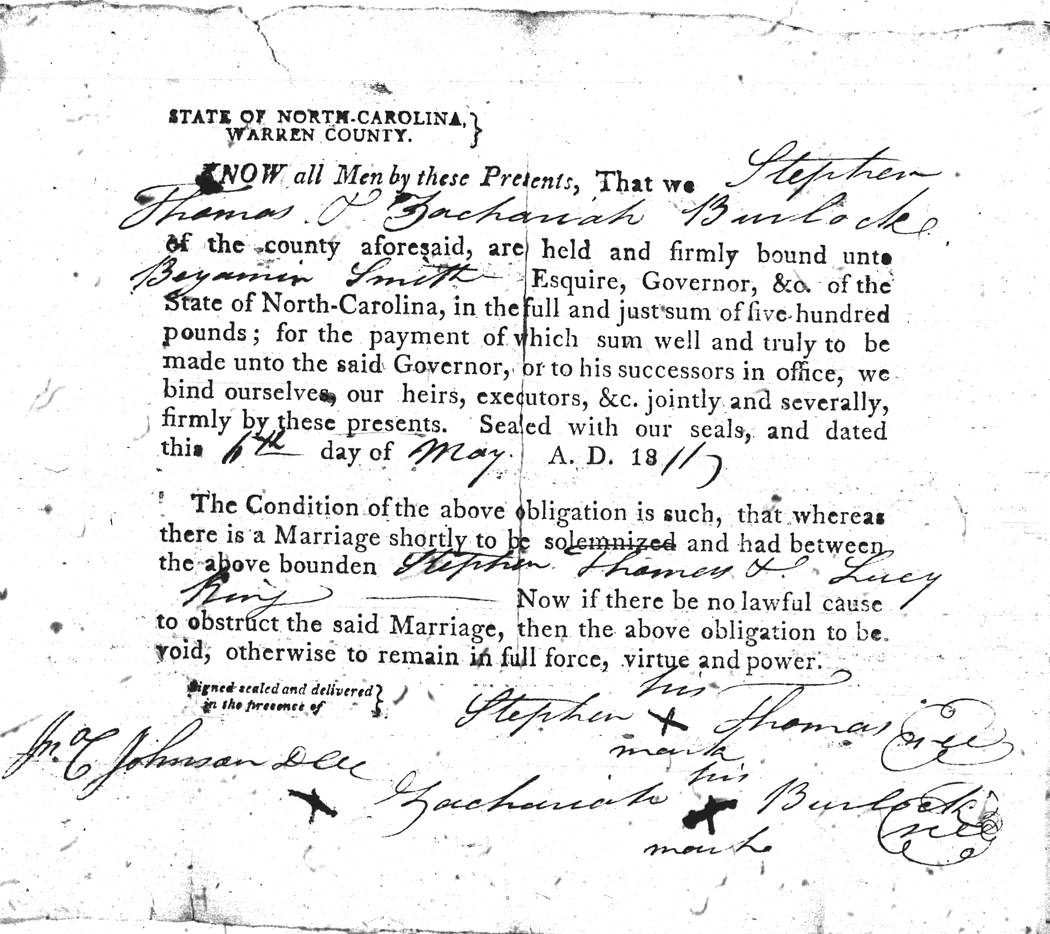 STATE OF NORTH-CAROLINA,
WARREN COUNTY.
KNOW all Men by these Presents, That we Stephen
Thomas & Zachariah Burlock
of the county aforesaid, are held and firmly bound unto
Benjamin Smith Esquire, Governor, &c. of the
State of North-Carolina, in the full and just sum of five hundred
pounds; for the payment of which sum well and truly to be
made unto the said Governor, or to his successors in office, we
bind ourselves, our heirs, executors, &c. jointly and severally,
firmly by these presents. Sealed with our seals, and dated
this 6th day of May A. D. 1811
The Condition of the above obligation is such, that whereas
there is a Marriage shortly to be solemnized and had between
the above bounden Stephen Thomas & Lucy
King Now if there be no lawful cause
to obstruct the said Marriage, then the above obligation to be
void, otherwise to remain in full force, virtue and power.
Signed sealed and delivered
in the presence of
his
Stephen X Thomas
mark
Jno C Johnson DCC
his
Zachariah X Burlock
mark